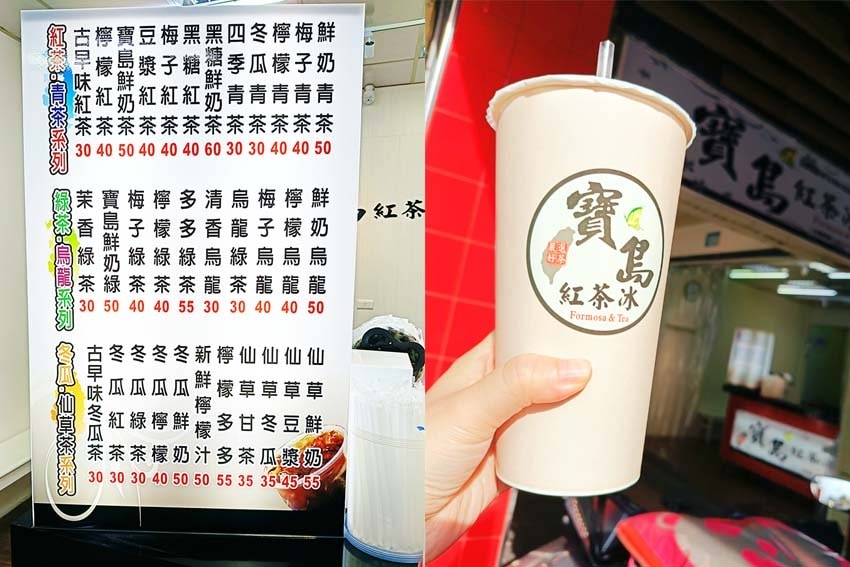 紅茶·青茶系列
古早味紅茶 30
檸檬紅茶 40
寶島鮮奶茶 50
豆漿紅茶 40
梅子紅茶 40
黑糖紅茶 40
黑糖鮮奶茶 60
四季青茶 30
冬瓜青茶 30
檸檬青茶 40
梅子青茶 40
鮮奶青茶 50
綠茶·烏龍系列
茉香綠茶 30
寶島鮮奶綠 50
梅子綠茶 40
檸檬綠茶 40
多多綠茶 55
清香烏龍 30
烏龍綠茶 30
梅子烏龍 40
檸檬烏龍 40
鮮奶烏龍 50
冬瓜·仙草茶系列
古早味冬瓜茶 30
冬瓜紅茶 30
冬瓜綠茶 30
冬瓜檸檬 40
冬瓜鮮奶 50
新鮮檸檬汁 50
檸檬多多 55
仙草甘茶 35
仙草冬瓜 35
仙草豆漿 45
仙草鮮奶 55
島 紅茶
寶島
嚴選好茶
紅茶冰
Formosa & Tea
寶島 紅茶冰
寶島 紅茶